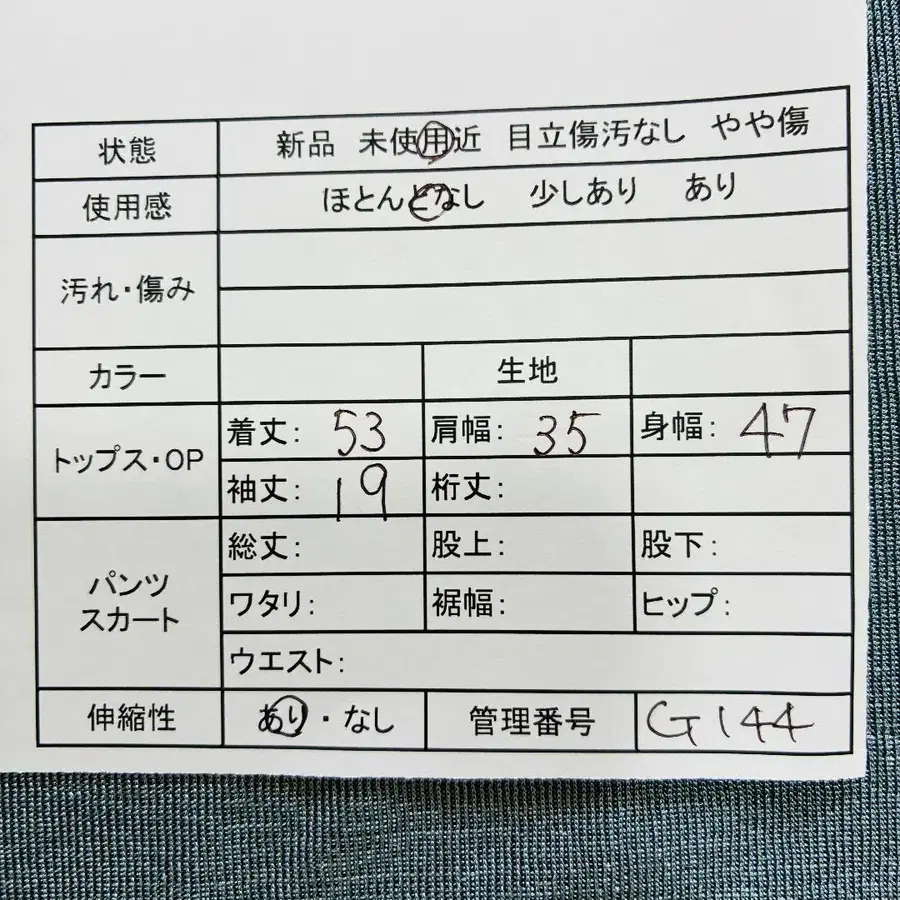 状態 新品 未使用近 目立傷汚なし やや傷
使用感 ほとんどなし 少しあり あり
汚れ・傷み
カラー 生地
トップス・OP 着丈: 53 肩幅: 35 身幅: 47
袖丈: 19 裄丈:
パンツ
スカート
総丈: 股上: 股下:
ワタリ: 裾幅: ヒップ:
ウエスト:
伸縮性 あり・なし 管理番号 G144